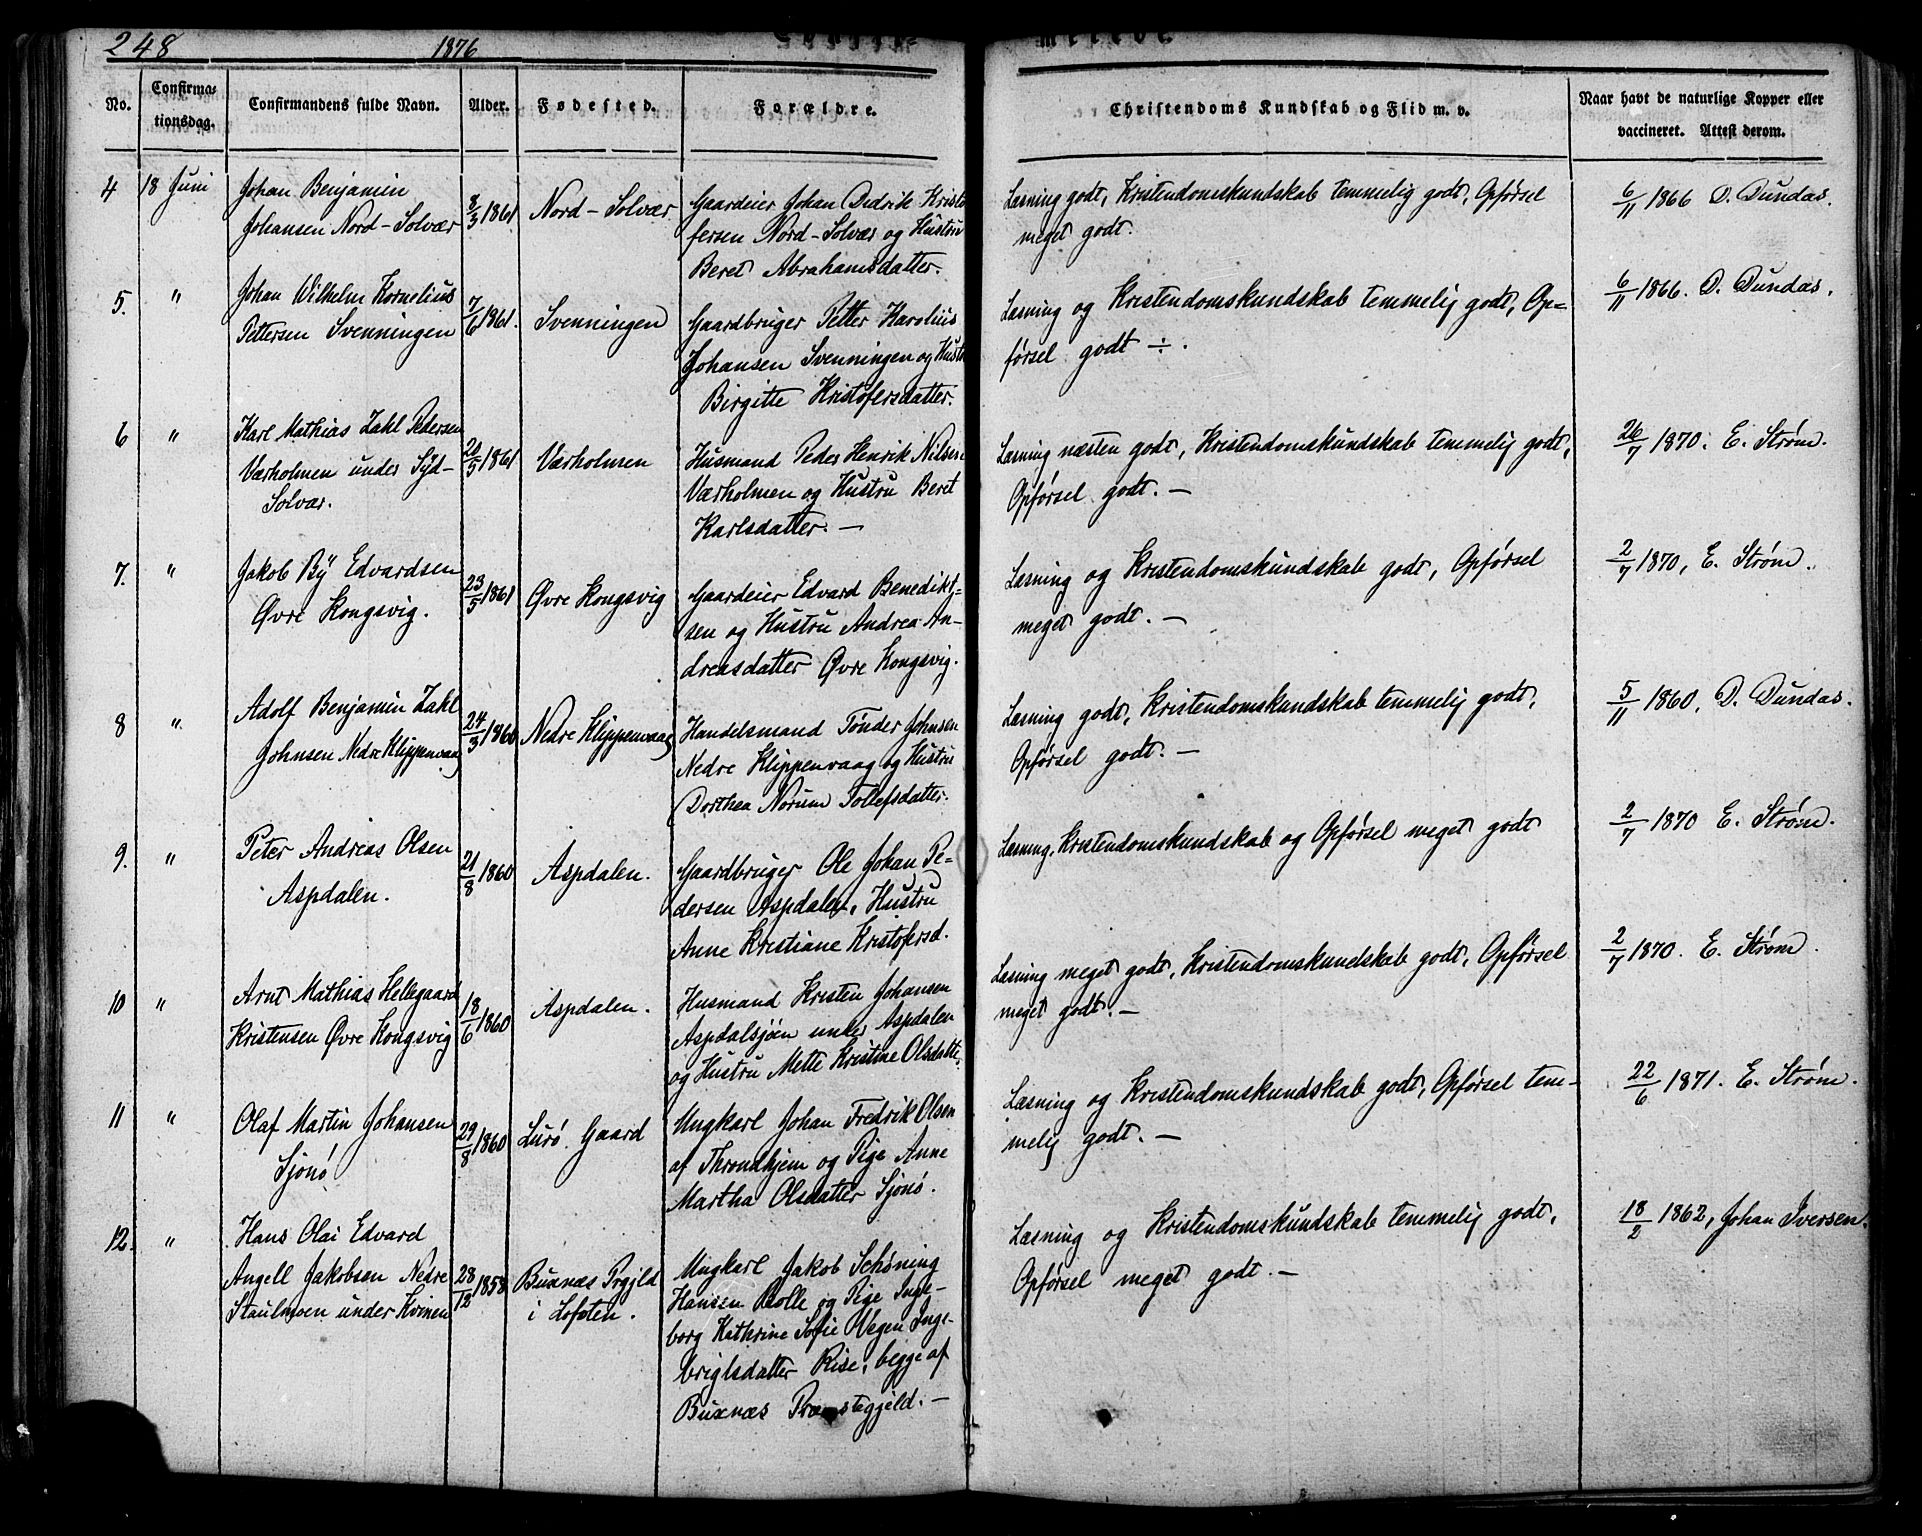 248
1876
No.
Confirma-
tionsdag.
Confirmandens fulde Navn.
Alder.
Fødested.
Forældre.
Christendoms Kundskab og Flid m. v.
Naar havt de naturlige Kopper eller
vaccineret. Attest derom.
4
18 Juni
Johan Benjamin
Johansen Nord-Solvær
8/3 1861
Nord-Solvær
Gaardeier Johan Didrik Kristo
fersen Nord-Solvær og Hustru
Beret Abrahamsdatter.
Læsning godt, Kristendomskundskab temmelig godt, Opførsel
meget godt.
6/11 1866 D. Dundas.
5.
"
Johan Wilhelm Kornelius
Pettersen Svenningen
7/6 1861.
Svenningen
Gaardbruger Petter Karolius
Johansen Svenningen og Hustr
Birgitte Kristofersdatter.
Læsning og Kristendomskundskab temmelig godt, Op=
førsel godt ÷.
6/11 1866. D. Dundas.
6
"
Karl Mathias Zahl Pedersen
Værholmen under Syd-
Solvær.
20/5 1861
Værholmen
Husmand Peder Henrik Nilsen
Værholmen og Hustru Beret
Karlsdatter. —
Læsning næsten godt, Kristendomskundskab temmelig godt,
Opførsel godt. —
26/7 1870. E. Strøm.
7.
"
Jakob By Edvardsen
Øvre Kongsvig.
23/5 1861
Øvre Kongsvig
Gaardeier Edvard Benedikt=
sen og Hustru Andrea An-
dreasdatter Øvre Kongsvig.
Læsning og Kristendomskundskab godt, Opførsel
meget godt. —
2/7 1870, E. Strøm.
8
"
Adolf Benjamin Zahl
Johnsen Nedre Klippenvaag
24/3 1860
Nedre Klippenvaag
Handelsmand Tønder Johnsen
Nedre Klippenvaag og Hustru
Dorthea Norum Tollefsdatter.
Læsning godt, Kristendomskundskab temmelig godt,
Opførsel godt. —
5/11 1860, D. Dundas.
9.
"
Peter Andreas Olsen
Aspdalen.
21/8 1860
Aspdalen.
Gaardbruger Ole Johan Pe-
dersen Aspdalen, Hustru
Anne Kristiane Kristofersd.
Læsning, Kristendomskundskab og Opførsel meget godt
2/7 1870 E. Strøm.
10
"
Arnt Mathias Hellegaard
Kristensen Øvre Kongsvig
18/6 1860
Aspdalen.
Husmand Kristen Johansen
Aspdalsjøen under Aspdalen
og Hustru Mette Kristine Olsdatte.
Læsning meget godt, Kristendomskundskab godt, Opførsel
meget godt. —
2/7 1870. E. Strøm.
11
"
Olaf Martin Johansen
Sjonø
29/8 1860
Lurø Gaard
Ungkarl Johan Fredrik Olsen
af Throndhjem og Pige Anne
Martha Olsdatter Sjonø.
Læsning og Kristendomskundskab godt, Opførsel tem-
melig godt. —
22/6 1871. E. Strøm.
12.
"
Hans Olai Edvard
Angell Jakobsen Nedre
Staulmoen under Kvinen
28/12 1858
Buxnæs Prgjld
i Lofoten.
Ungkarl Jakob Schøning
Hansen Bolle og Pige Inge-
borg Kathrine Sofie Wegen Inge-
brigtsdatter Rise, begge af
Buxnæs Præstegjeld. —
Læsning og Kristendomskundskab temmelig godt,
Opførsel meget godt. —
18/2 1862, Johan Iversen.